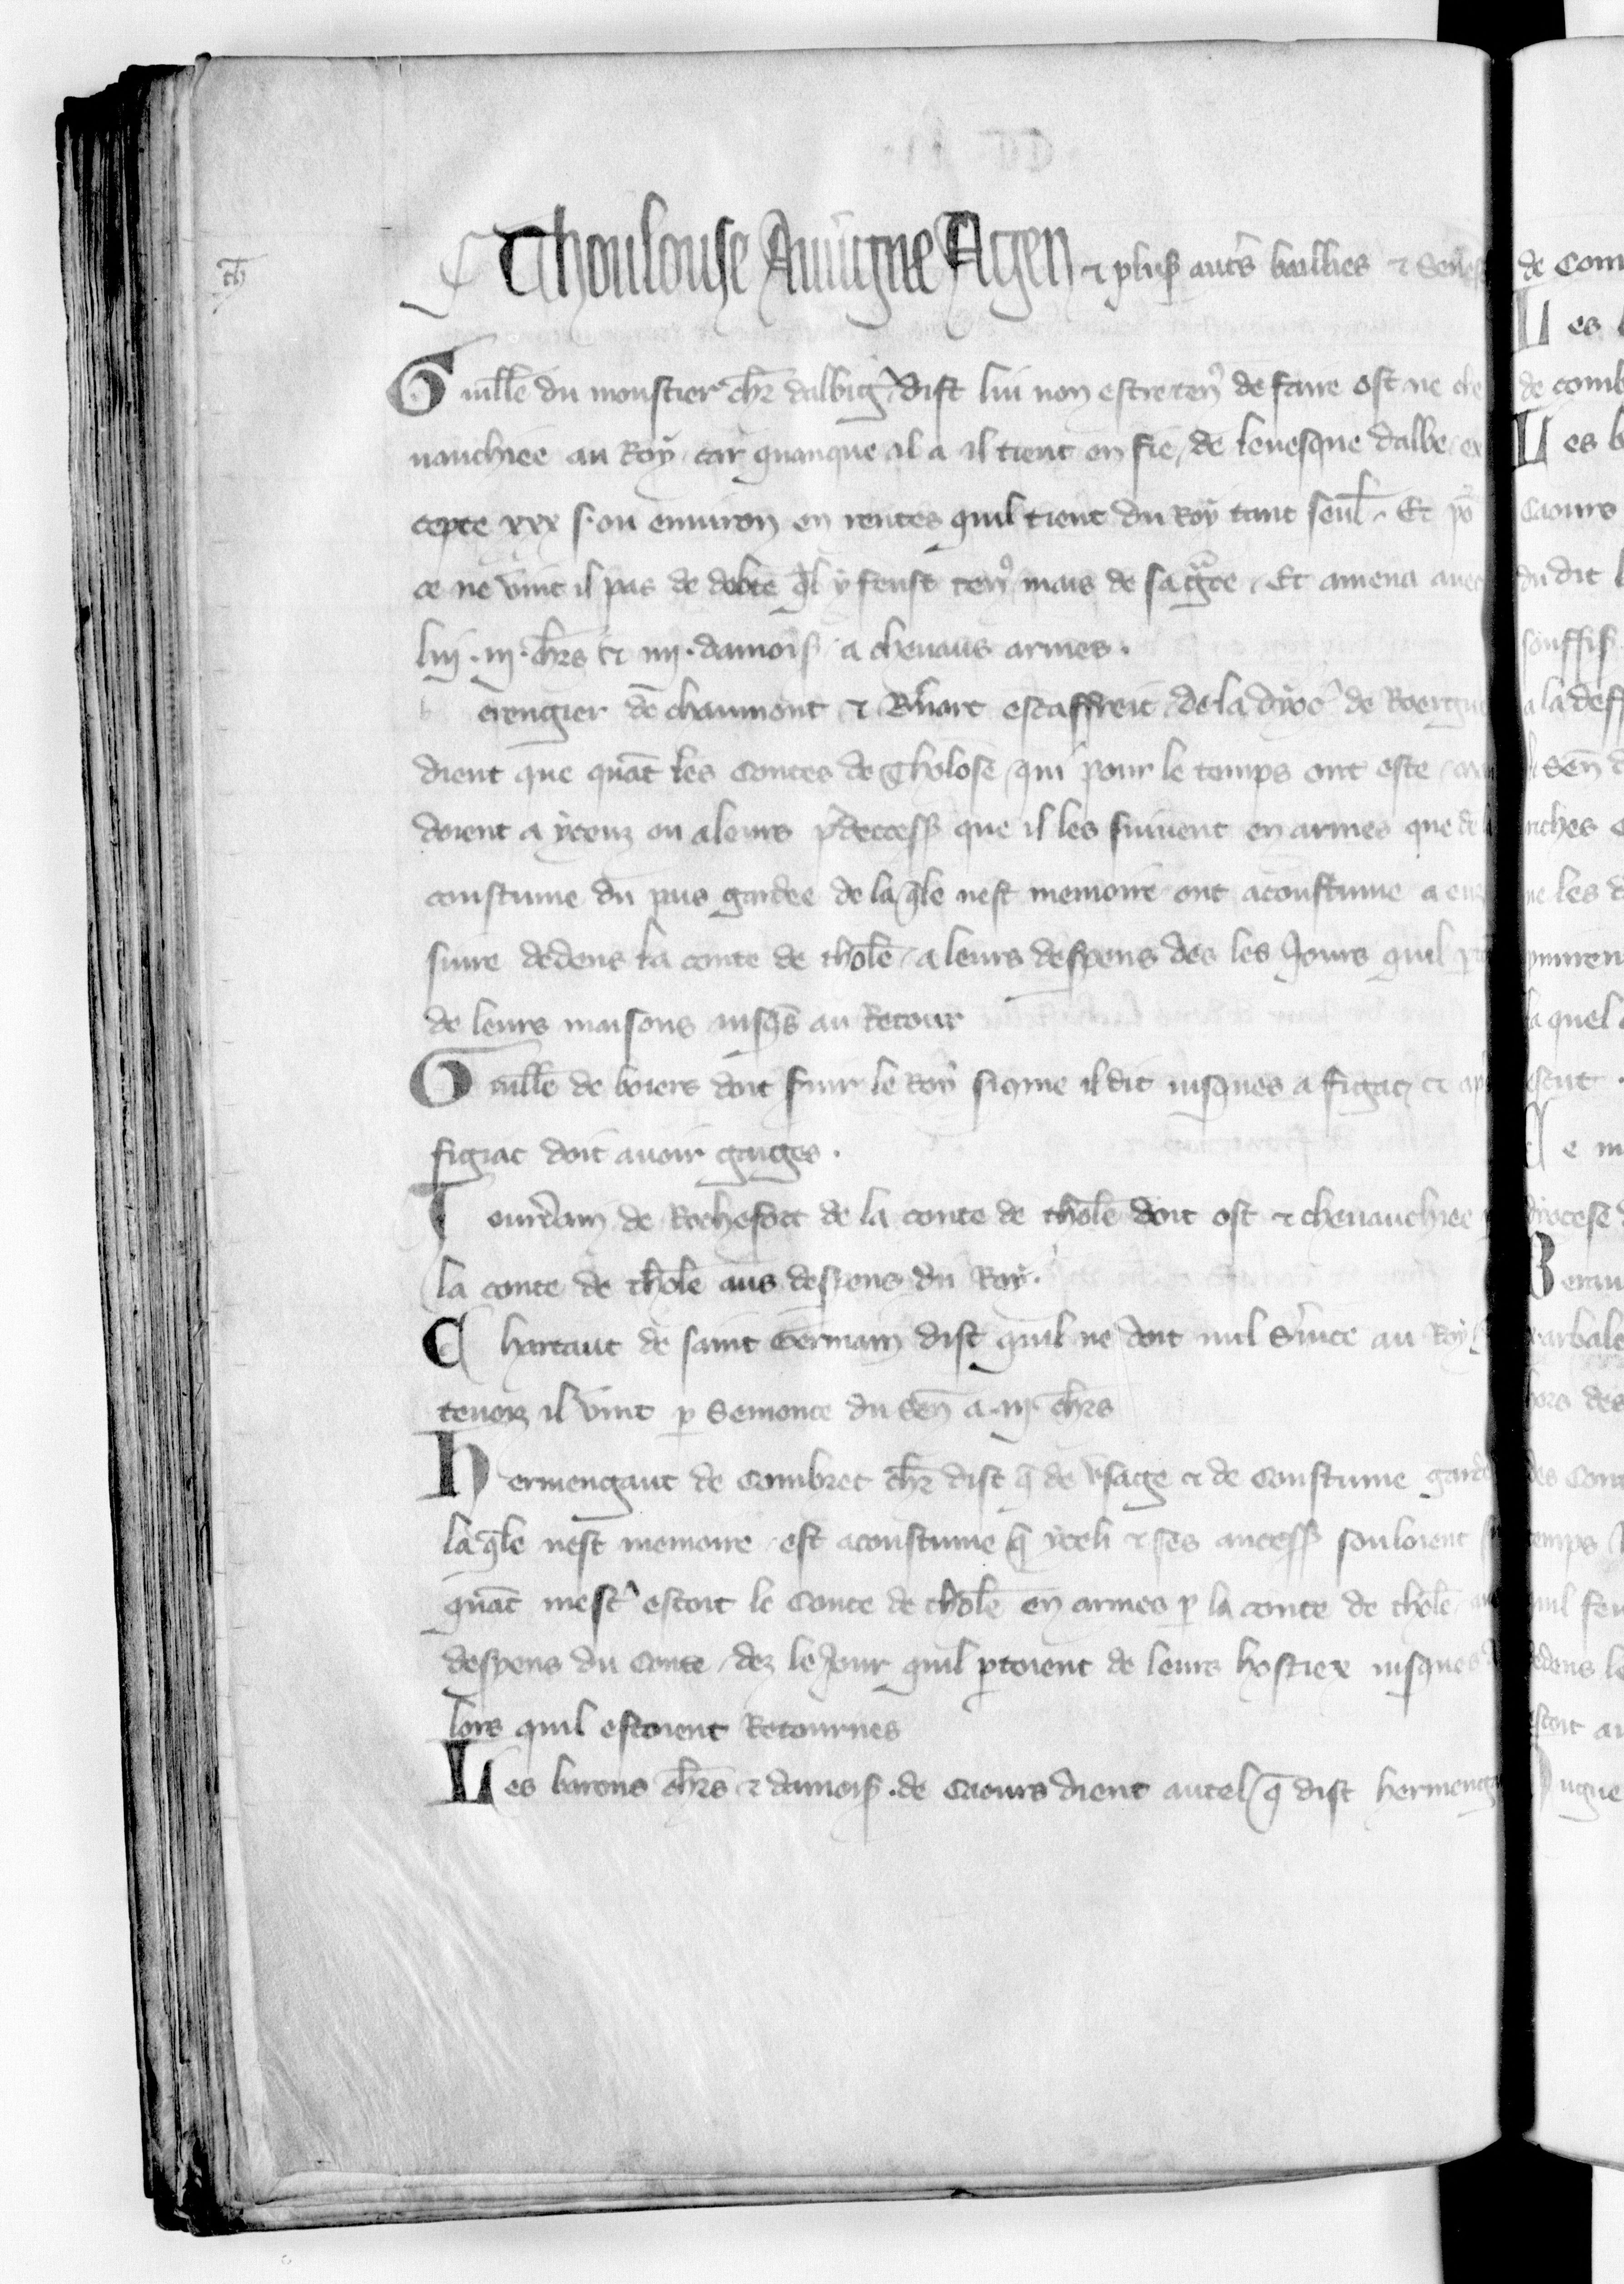 Thoulouse Auv̾igne Agen & plus̾s aut̾s baillies & Senes
Guill̄e du monstier ch̄r dalbig̾ dist lui non estre tenꝰ de faire ost ne che
uauchiee au Roy car quanque il a il tient en fie de leuesque dalbe ex
cepte xxx s. ou enuiron en rentes quil tient du Roy tant seul̄. Et po᷑
ce ne vint il pas de debte ql̄ y feust tenꝰ mais de sa gᵃce. Et amena auec
lui .iij. ch̄rs & iiij. damois̾ a cheuaus armes.
erengier de chaumont & B̾nart escaffreit de la dyoc̾ de Roergue
dient que quāt les Contes de Tholose qui pour le temps ont este
doient a yceuz ou a leurs p̄decess̾ que il les suiuent en armes que de
coustume du pais gardee de la q̄le nest memoire ont acoustume a eux
suire dedens la conte de thol̄e a leurs despens des les Jours quil
de leurs maisons iusq̄s au Retour
Guill̄e de boiers doit suir le Roy siq̄me il dit iusques a figiac & ap
figiac doit auoir gaiges.
Jourdain de Rochefort de la conte de thol̄e doit ost & cheuauchiee
la conte de thol̄e aus despens du Roy.
Chataut de saint Germain dist quil ne doit nul s̾uice au Roy
tenoiz il vint p Semonce du Sen̄ a .iij. ch̄rs
Hermengaut de Combret ch̄r dist q̄ de vsage & de Coustume garde
la q̄le nest memoire est acoustume q̄ yceli & ses ancess̾ souloient
quāt mest̾ estoit le Conte de thol̄e en armes p la conte de thol̄e
despens du Conte dez le Jour quil ptoient de leurs hostiex iusques
lors quil estoient Retournes
Les barons ch̄rs & damois̾. de Caours dient autel q̄ dist hermeng
de Com
Les
de comb
Les b
Caours
du dit
souffis̾
a la deff
Sen̄ d
riches
les d
la quel
escut
e m
diocese
Berau
arbale
hors des
des Cont
temps
quil feu
dedens le
estoit au
ugue